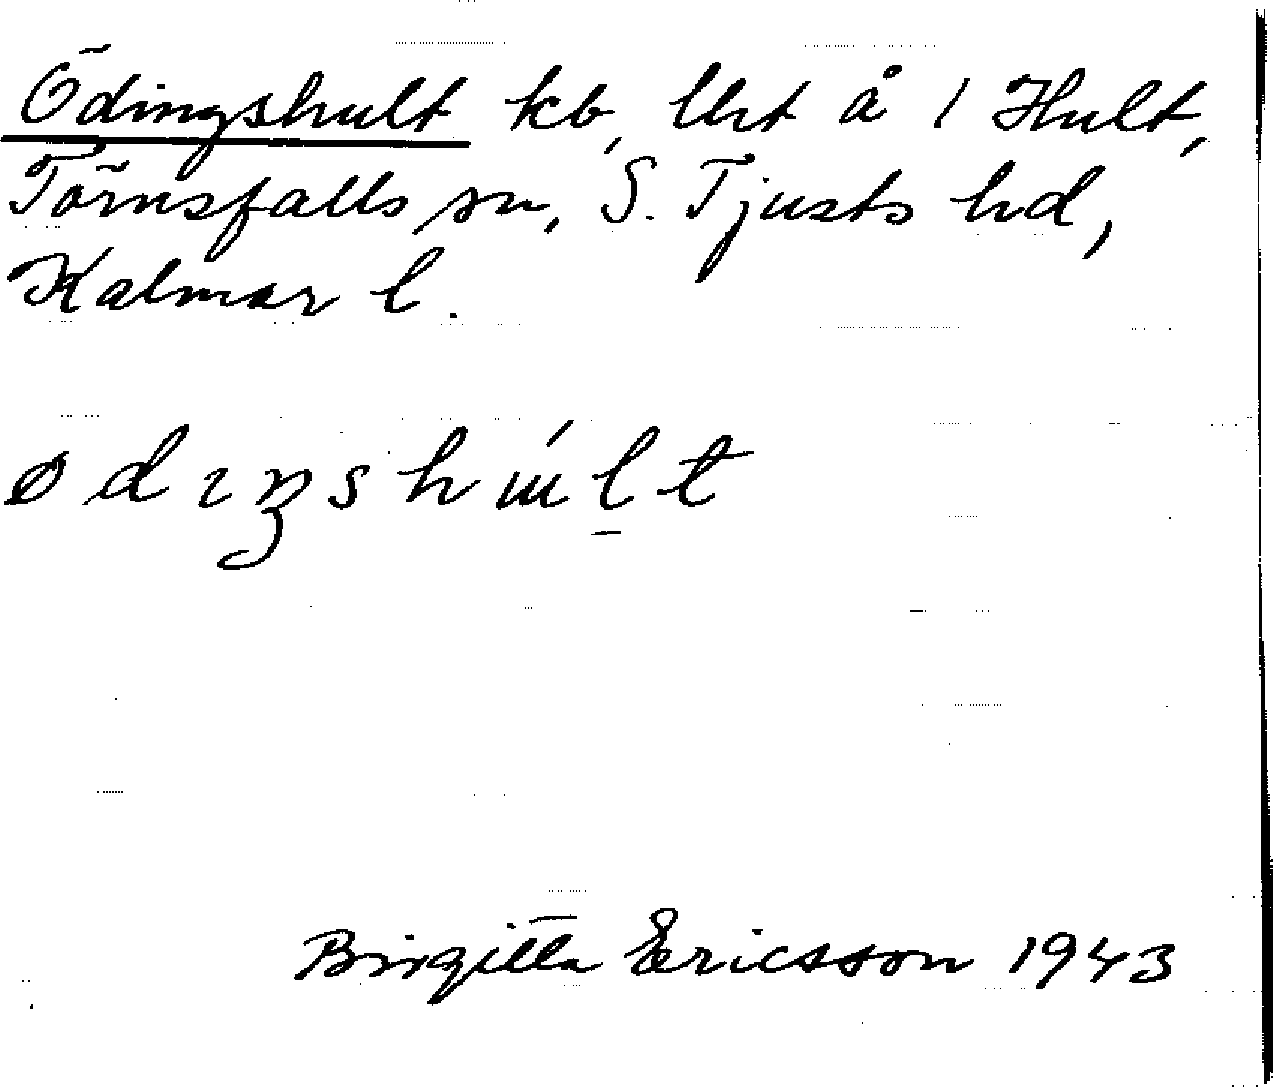 Ödingshult kb, lht å 1 Hult,
Törnsfalls sn, S. Tjusts hd,
Kalmar l.
ødıŋshu̇́l̠t
Birgitta Ericsson 1943